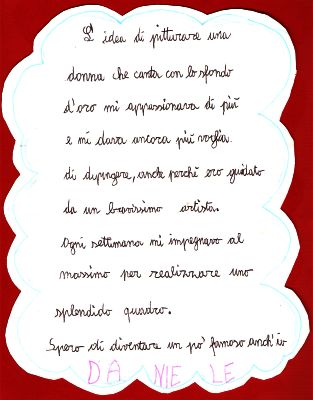 L'idea di pitturare una
donna che canta con lo sfondo
d'oro mi appassionava di più
e mi dava ancora più voglia
di dipingere, anche perchè ero guidato
da un bravissimo artista.
Ogni settimana mi impegnavo al
massimo per realizzare uno
splendido quadro.
Spero di diventare un po' famoso anch'io
DANIELE